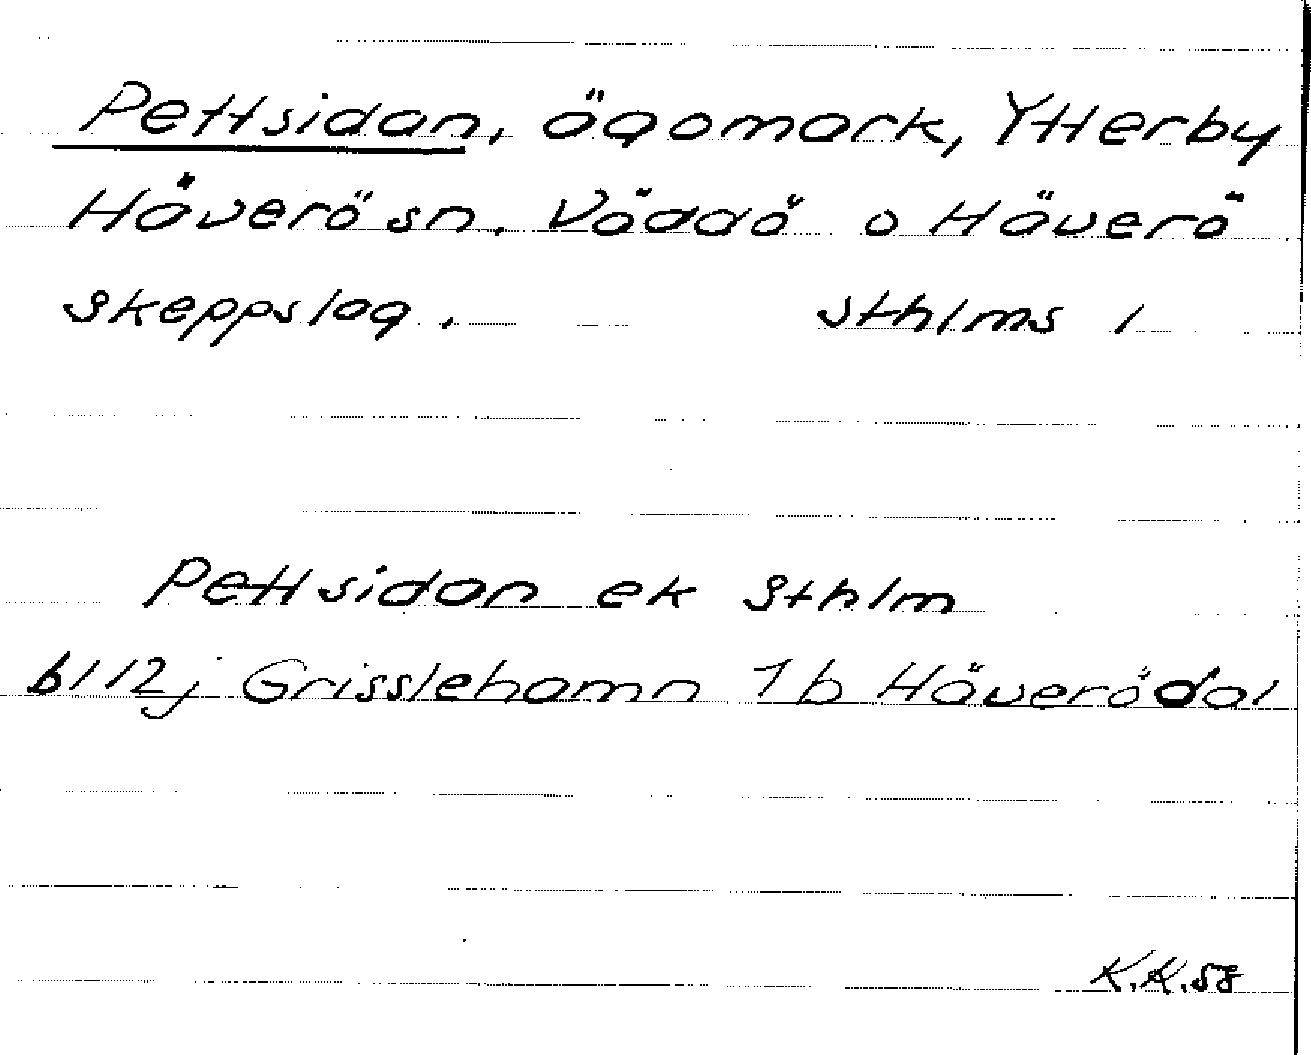 Pettsidan, ägomark, Ytterby
Häverö sn. Väddö o Häverö
skeppslag. Sthlms l
Pettsidan ek Sthlm
bl 12j Grisslehamn 1b Häverödal
K.K.58